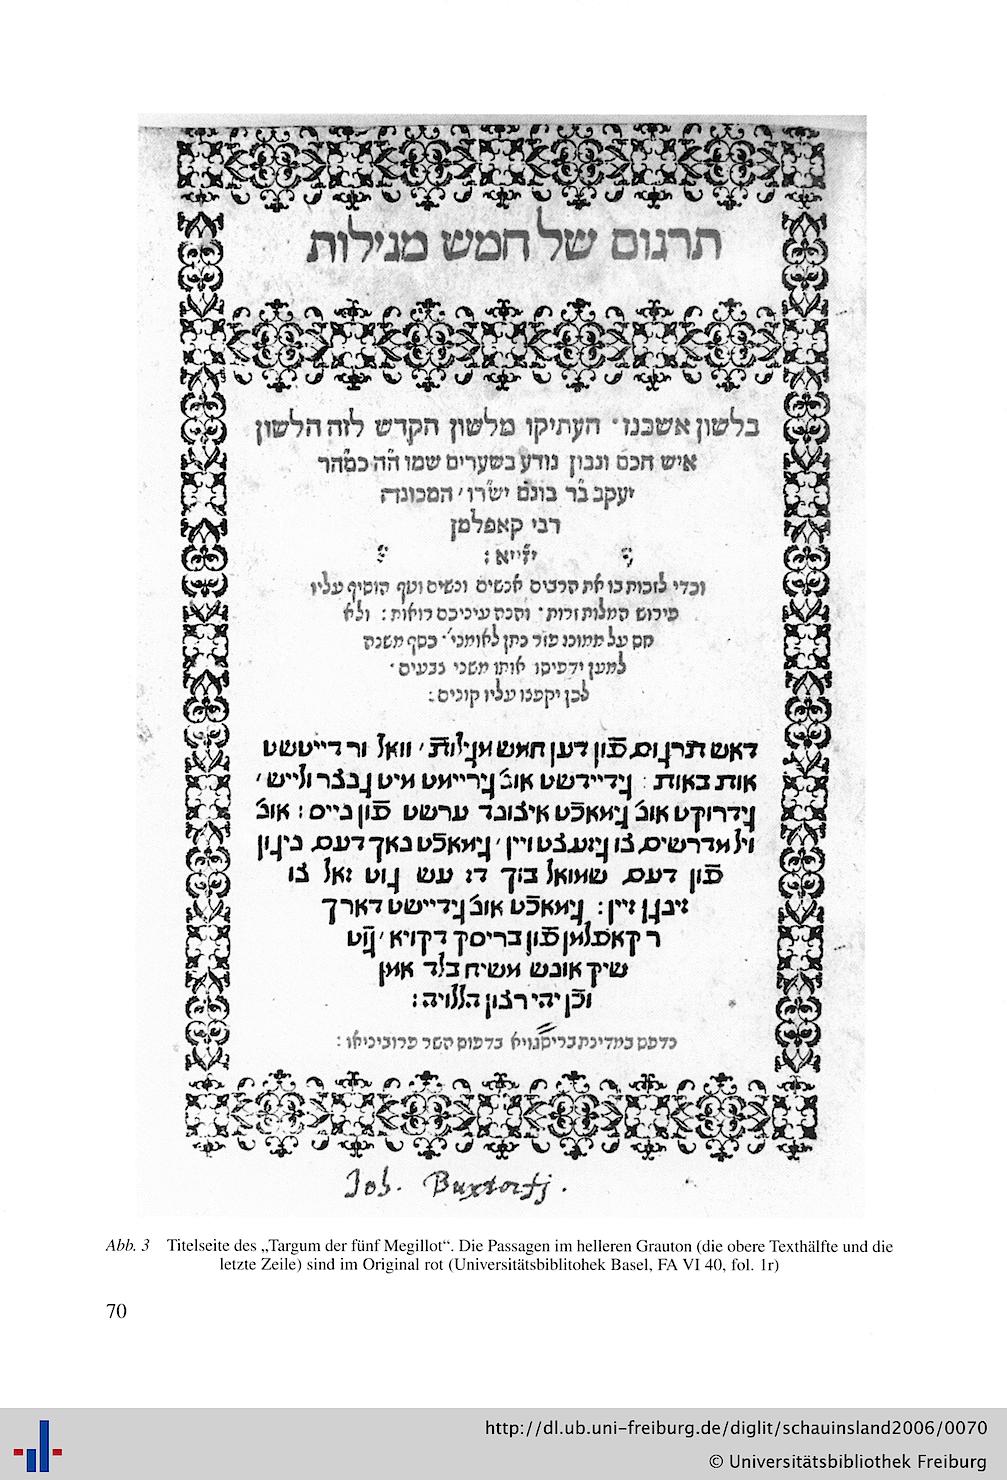 תרגום של חמש מגילות
בלשון אשכנז· העתיקו מלשון הקדש לזה הלשון
איש חכם ונבון נודע בשערים שמו הה כמהר
יעקב בר בונם יש״רו׳ המכונה
רבי קאפלמן
יזייא :
וכדי לזכות בו את הרבים אנשים ונשים וטף הוסיף עליו
פירוש המלות זרות· והנה עיניכם רואות : ולא
חס על ממונו פזר נתן לאומני׳· כסף משנה
למען ידפיסו אותו משני גבעים·
לכן יקפצו עליו קונים :
דאש תרגום פֿון דען חמש מגילות׳ וואל ור דייטשט
אות באות : גידיידשט אוב׳ גיריימט מיט גנצר ולייש׳
גידרוקט אוב׳ גימאכֿט איצונד ערשט פֿון נייס : אוב׳
ויל מדרשים צו גיזעצט ויין׳ גימאכֿט נאך דעם ניגון
פֿון דעם שמואל בוך דז עש גוט זאל צו
זינגן זיין : גימאכֿט אוב׳ גידייטשט דארך
ר קאפלמן פֿון בריסק דקויא׳ גוט
שיק אונש משיח בלד אמן
וכן יהי רצון הללויה :
נדפס במדינת ברייסגויא בדפוס השר פרוביניאו :
Joh. Buxtorfj.
Abb. 3 Titelseite des „Targum der fünf Megillot“. Die Passagen im helleren Grauton (die obere Texthälfte und die
letzte Zeile) sind im Original rot (Universitätsbiblitohek Basel, FA VI 40, fol. 1r)
70
http://dl.ub.uni-freiburg.de/diglit/schauinsland2006/0070
© Universitätsbibliothek Freiburg